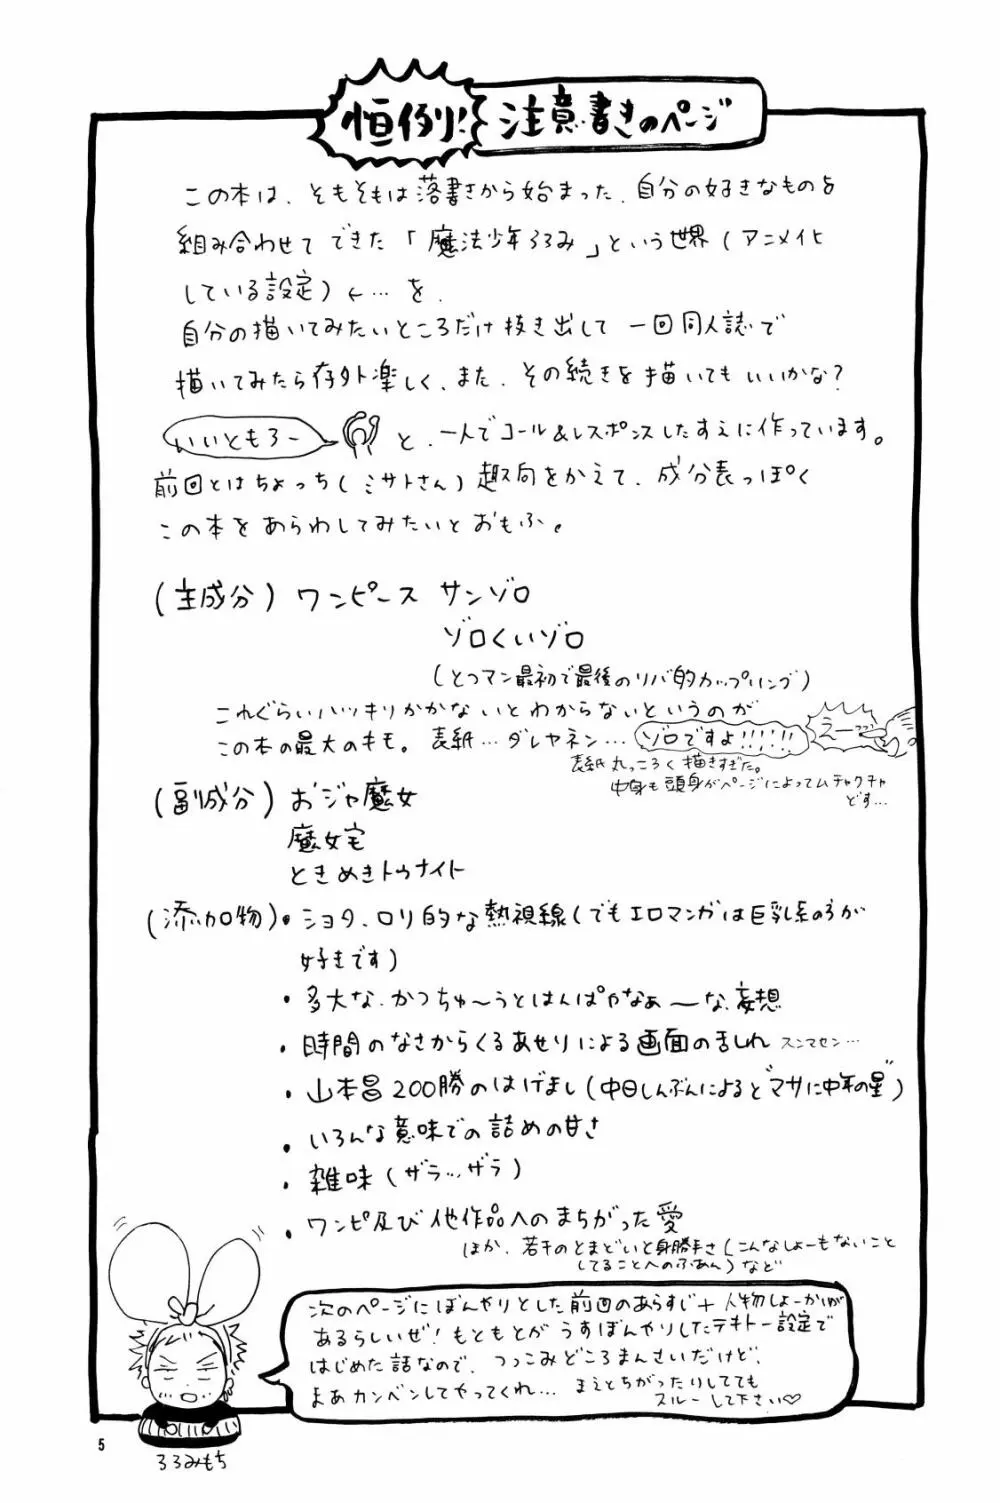 恒例！ 注意書きのページ
この本は、そもそもは落書きから始まった、自分の好きなものを
組み合わせてできた「魔法少年ろろみ」という世界（アニメ化
している設定）←…を、
自分の描いてみたいところだけ抜き出して一回同人誌で
描いてみたら存外楽しく、また、その続きを描いてもいいかな？
いいともろー と、一人でコール&レスポンスしたすえに作っています。
前回とはちょっち（ミサトさん）趣向をかえて、成分表っぽく
この本をあらわしてみたいとおもふ。
（主成分）ワンピース サンゾロ
ゾロくいゾロ
（とつマン最初で最後のリバ的カップリング）
これぐらいハッキリかかないとわからないというのが
この本の最大のキモ。表紙…ダレヤネン…ゾロですよ!!!!!! えーっっ
表紙丸っころく描きすぎた。
中身も頭身がページによってムチャクチャ
どす…
（副成分）おジャ魔女
魔女宅
ときめきトゥナイト
（添加物）・ショタ、ロリ的な熱視線（でもエロマンガは巨乳系の方が
好きです）
・多大な、かつちゅ〜うとはんぱやなぁ〜な、妄想
・時間のなさからくるあせりによる画面の乱れ スンマセン…
・山本昌200勝のはげまし（中日しんぶんによると“マサに中年の星”）
・いろんな意味での詰めの甘さ
・雑味（ザラ…ザラ）
・ワンピ及び他作品へのまちがった愛
ほか、若干のとまどいと身勝手さ（こんなしょーもないこと
してることへのふあん）など
次のページにぼんやりとした前回のあらすじ＋人物しょーかいが
あるらしいぜ！もともとがうすぼんやりしたテキトー設定で
はじめた話なので、つっこみどころまんさいだけど、
まあカンベンしてやってくれ… まえとちがったりしてても
スルーして下さい♡
5
ろろみもち